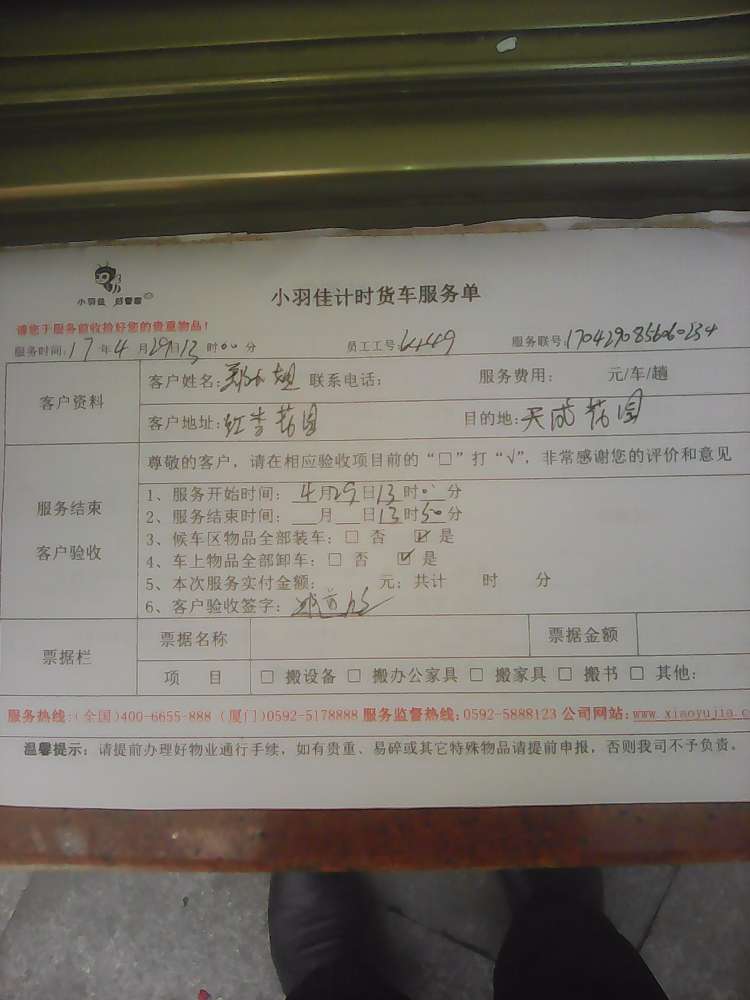 小羽佳 好管家
小羽佳计时货车服务单
请您于服务前收拾好您的贵重物品!
服务时间:17年4月29日13时00分 员工工号 服务联号:
客户资料
客户姓名:郑小姐 联系电话: 服务费用: 元/车/趟
客户地址:红杏花园 目的地:天成花园
服务结束
客户验收
尊敬的客户,请在相应验收项目前的“□”打“√”,非常感谢您的评价和意见
1、服务开始时间:4月29日13时00分
2、服务结束时间:__月__日13时50分
3、候车区物品全部装车:□ 否 ☑ 是
4、车上物品全部卸车:□ 否 ☑ 是
5、本次服务实付金额: 元;共计 时 分
6、客户验收签字:
票据栏
票据名称 票据金额
项 目 □ 搬设备 □ 搬办公家具 □ 搬家具 □ 搬书 □ 其他:
服务热线:(全国)400-6655-888 (厦门)0592-5178888 服务监督热线:0592-5888123 公司网站:www.xiaoyujia.c
温馨提示:请提前办理好物业通行手续,如有贵重、易碎或其它特殊物品请提前申报,否则我司不予负责。